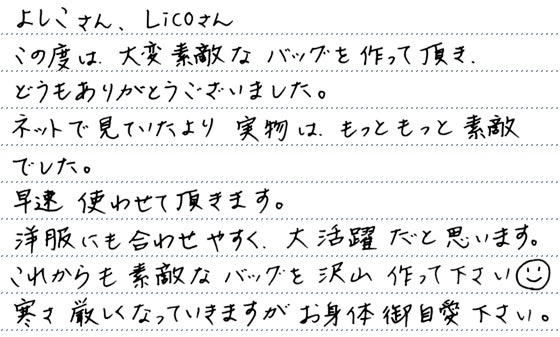 よしこさん、Licoさん
この度は、大変素敵なバッグを作って頂き、
どうもありがとうございました。
ネットで見ていたより実物は、もっともっと素敵
でした。
早速使わせて頂きます。
洋服にも合わせやすく、大活躍だと思います。
これからも素敵なバッグを沢山作って下さい☺
寒さ厳しくなっていきますがお身体御自愛下さい。